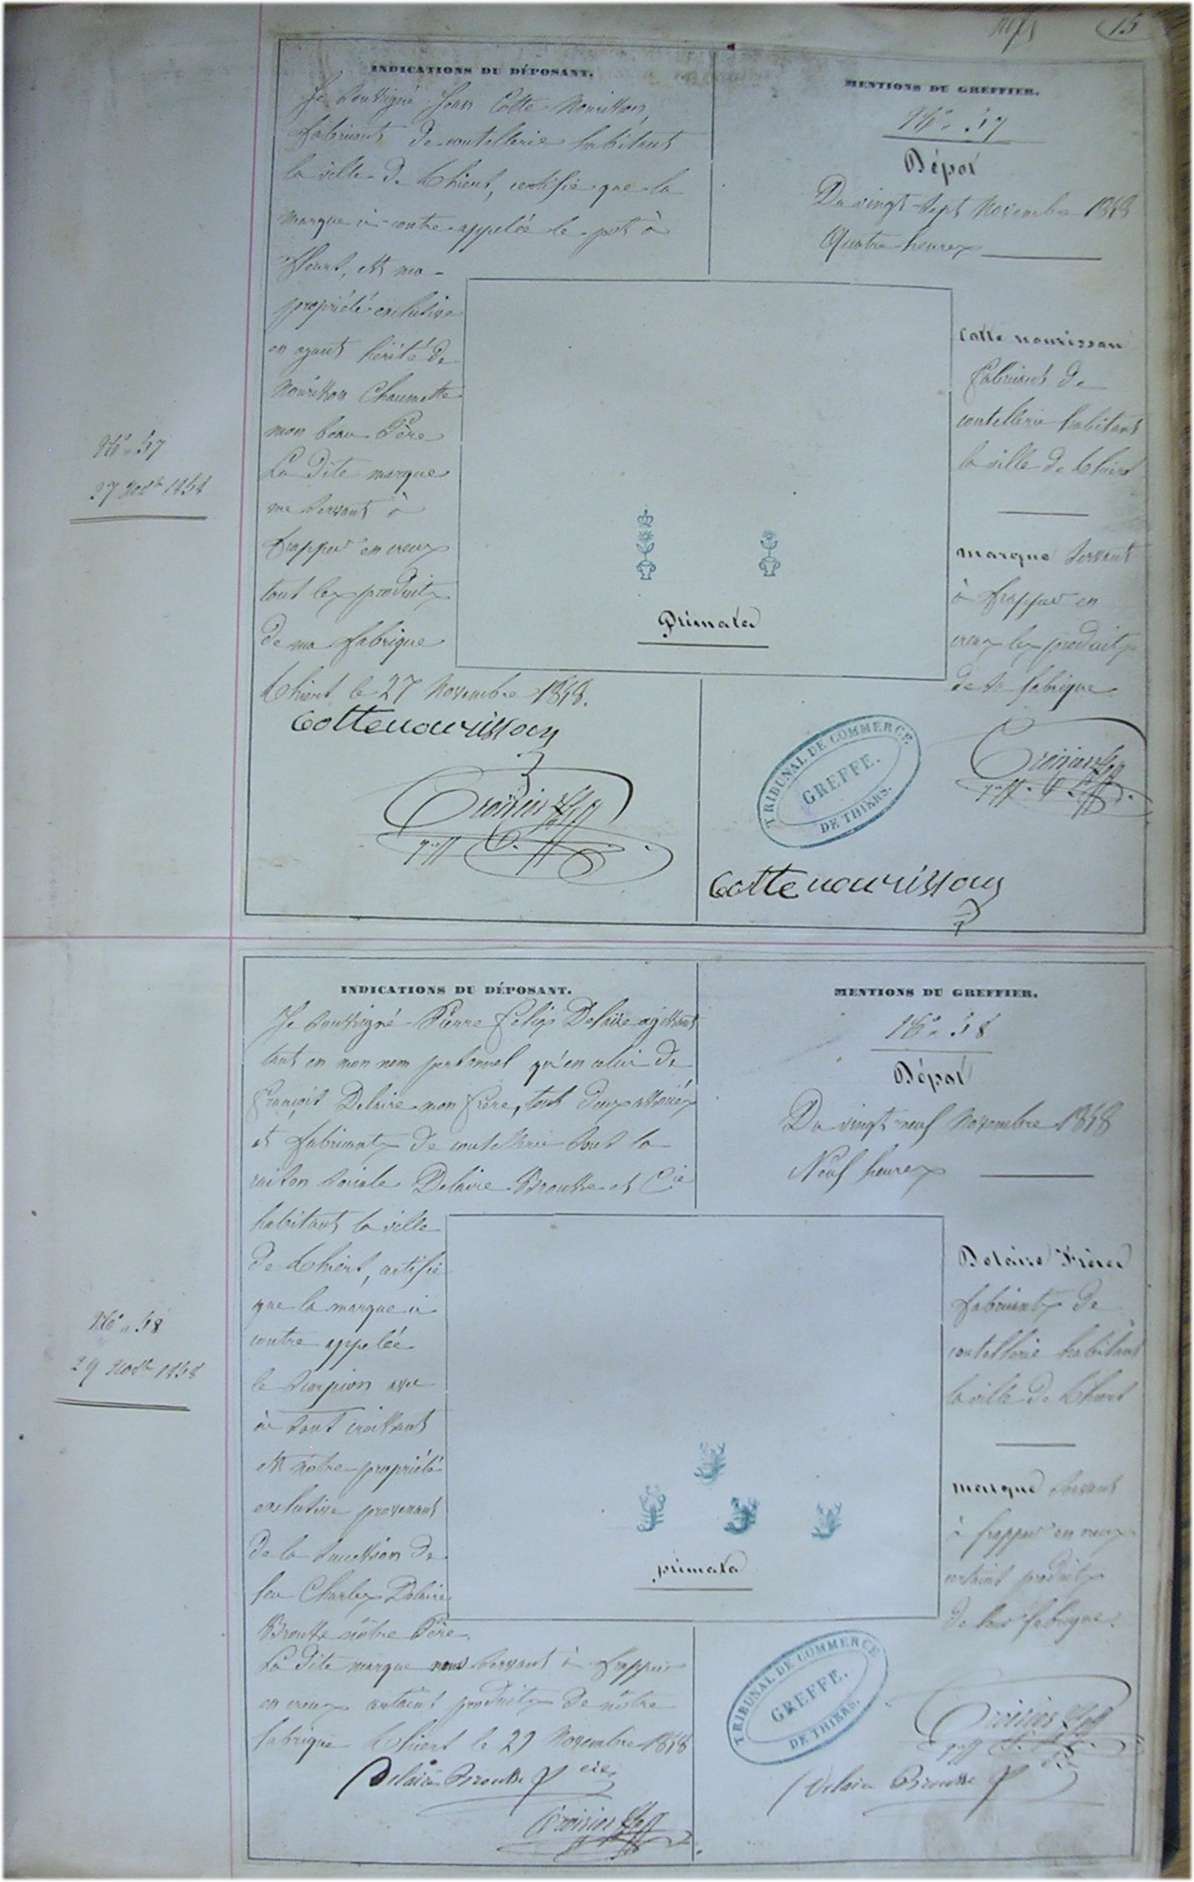 15
INDICATIONS DU DÉPOSANT.
Je soussigné Jean Cotte-Nourisson,
fabricant de coutellerie habitant
la ville de Thiers, certifie que la
marque ci-contre appelée le pot à
fleurs, est ma
propriété exclusive
en ayant hérité de
Nourisson Chaumette
mon beau Père
La dite marque
me servant à
frapper en creux
tout les produits
de ma fabrique
Thiers le 27 Novembre 1858.
Cotte nourisson
MENTIONS DU GREFFIER.
N° 57
Dépot
Du vingt-sept Novembre 1858
Quatre heures
Cotte nourisson
fabricant de
coutellerie habitant
la ville de Thiers
marque servant
à frapper en
creux les produits
de sa fabrique
primata
TRIBUNAL DE COMMERCE.
GREFFE.
DE THIERS.
Cotte nourisson
N° 57
27 Nov.bre 1858
INDICATIONS DU DÉPOSANT.
Je soussigné Pierre Felix Delaire agissant
tant en mon nom personnel qu'en celui de
François Delaire mon frère, tous deux associés
et fabricants de coutellerie sous la
raison sociale Delaire Brousse et Cie
habitant la ville
de Thiers, certifie
que la marque ci
contre appelée
le scorpion avec
croissant
est notre propriété
exclusive provenant
de la succession de
feu Charles Delaire
Brousse nôtre Père.
La dite marque nous servant à frapper
en creux certains produits de nôtre
fabrique Thiers le 29 Novembre 1858
Delaire Brousse & cie
MENTIONS DU GREFFIER.
N° 58
Dépot
Du vingt-neuf Novembre 1858
Neuf heures
Delaire Frères
fabricants de
coutellerie habitant
la ville de Thiers
marque servant
à frapper en creux
certains produits
de leur fabrique.
primata
TRIBUNAL DE COMMERCE
GREFFE.
DE THIERS.
Delaire Brousse
N° 58
29 Nov.bre 1858